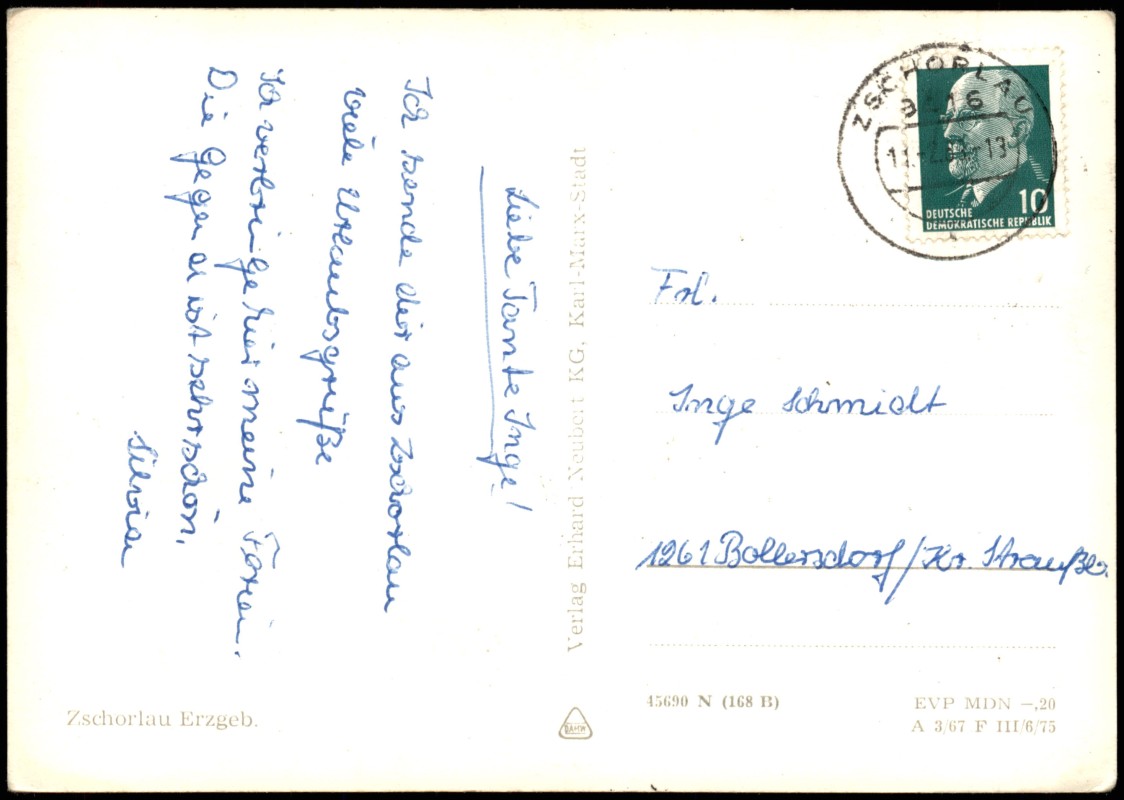 Liebe Tante Inge!
Ich sende dir aus Zschorlau
viele Urlaubsgrüße
Ich verbringe hier meine Ferien.
Die Gegend ist sehr schön.
Silvia
Zschorlau Erzgeb.
Verlag Erhard Neubert KG, Karl-Marx-Stadt
DAHW
ZSCHORLAU
10
DEUTSCHE
DEMOKRATISCHE REPUBLIK
Frl.
Inge Schmidt
1261 Bollersdorf/Kr. Straußb.
45690 N (168 B)
EVP MDN –,20
A 3/67 F III/6/75